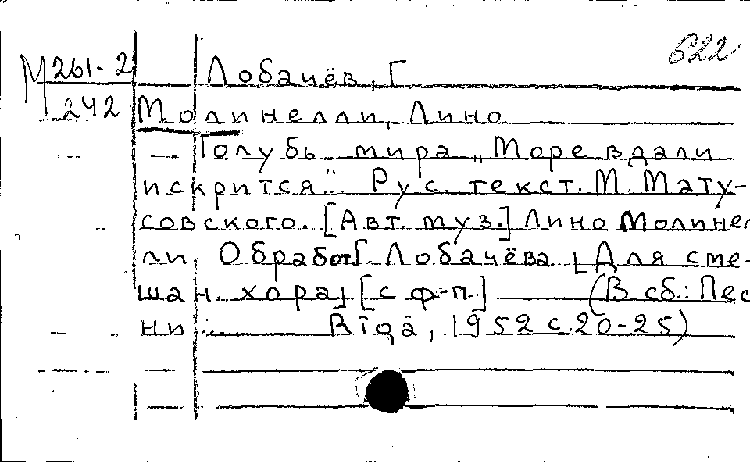 622
М 261-2 Лобачёв, Г
242 Молинелли, Лино
— Голубь мира „Море вдали
искрится". Рус. текст. М. Мату-
совского. [Авт. муз.] Лино Молинел
ли, Обработ Г. Лобачёва [Для сме-
шан. хора] [с ф-п.] (В сб.: Пес
ни: Rīgā, 1952 с. 20-25)